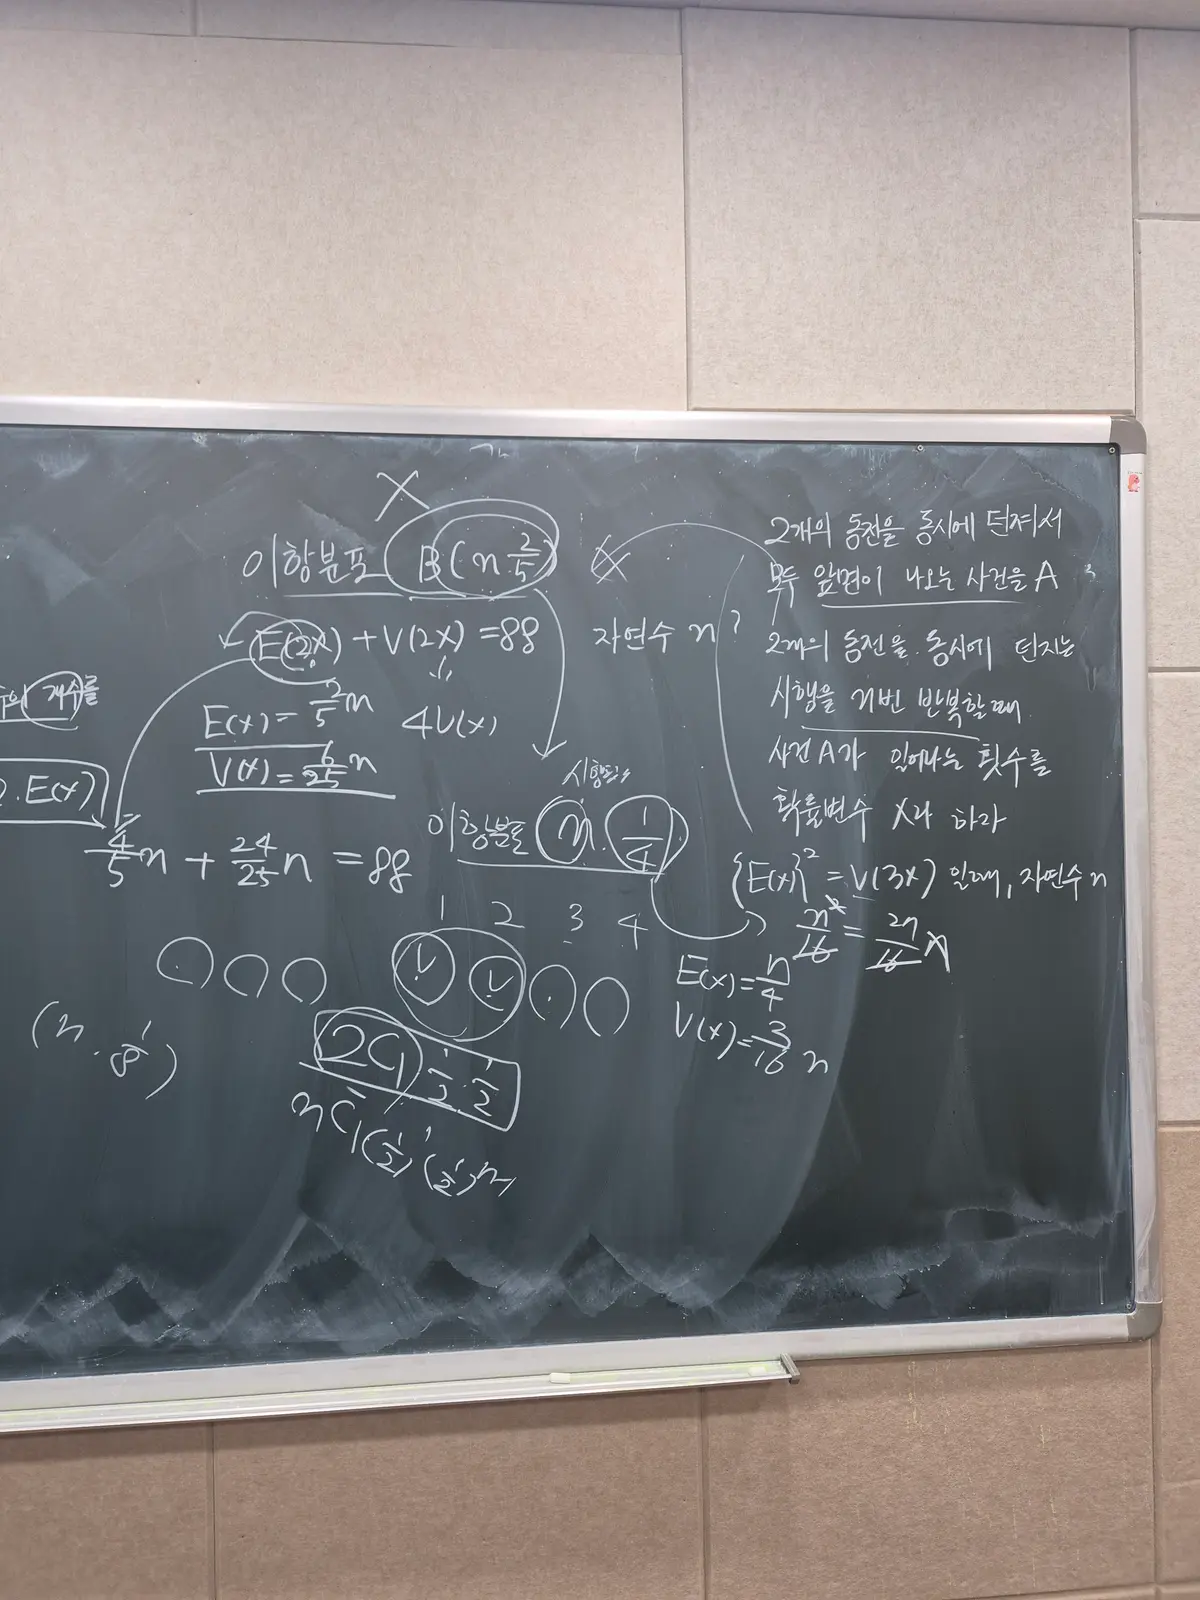 X
이항분포 B(n 2/5)
E(2X) + V(2X) = 88 자연수 n?
E(X) = 2/5 n 4V(X)
V(X) = 6/25 n
개수를
E(X)
4/5 n + 24/25 n = 88
시행횟수
이항분포 n. 1/4
1 2 3 4
V V
(n. 1/8)
2C1 1/2 · 1/2
nC1 (1/2)¹ (1/2)ⁿ⁻¹
2개의 동전을 동시에 던져서
모두 앞면이 나오는 사건을 A
2개의 동전을 동시에 던지는
시행을 n번 반복할 때
사건 A가 일어나는 횟수를
확률변수 X라 하자
{E(X)}² = V(3X) 일때, 자연수 n
n²/16 = 27/16 n
E(X) = n/4
V(X) = 3/16 n